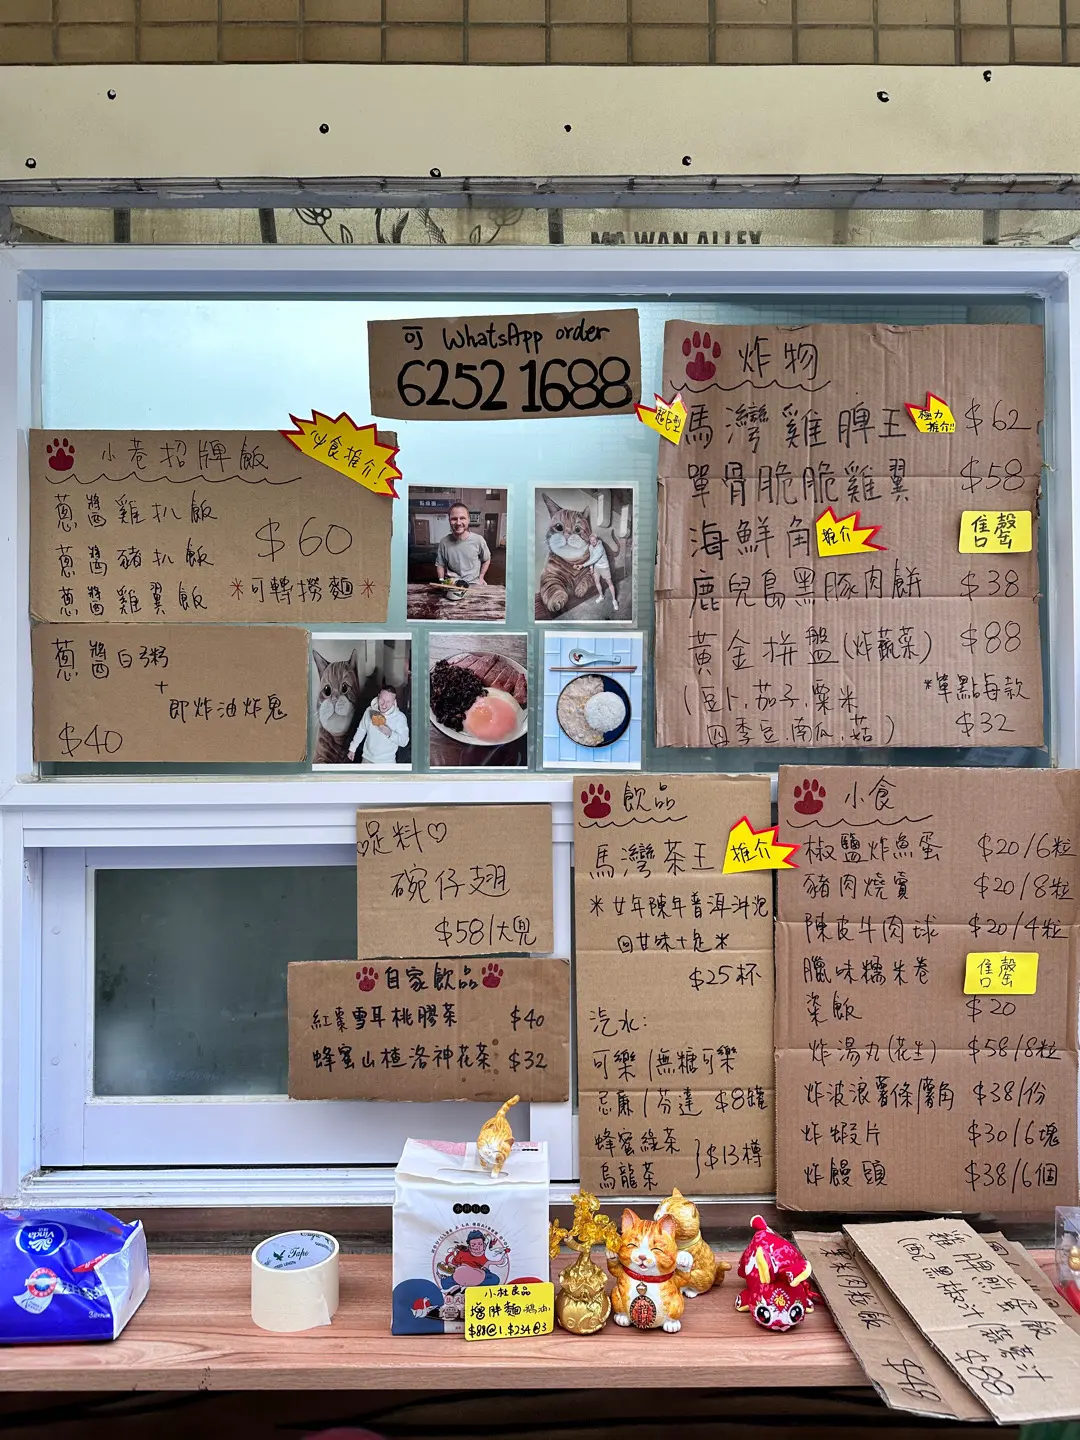 MA WAN ALLEY
可 WhatsApp order
6252 1688
小巷招牌飯
必食推介!
蔥醬雞扒飯
蔥醬豬扒飯
$60
蔥醬雞翼飯
*可轉撈麵*
蔥醬白粥
+
即炸油炸鬼
$40
炸物
超巨型
馬灣雞脾王
極力推介!!
$62
單骨脆脆雞翼 $58
海鮮角
推介
售罄
鹿兒島黑豚肉餅 $38
黃金拼盤(炸蔬菜) $88
(豆卜.茄子.粟米
四季豆.南瓜.菇)
*單點每款
$32
足料♡
碗仔翅
$58/大兜
自家飲品
紅棗雪耳桃膠茶 $40
蜂蜜山楂洛神花茶 $32
飲品
馬灣茶王
推介
*廿年陳年普洱沖泡
回甘味十足*
$25杯
汽水:
可樂/無糖可樂
忌廉/芬達 $8罐
蜂蜜綠茶
烏龍茶
}$13樽
小食
椒鹽炸魚蛋 $20/6粒
豬肉燒賣 $20/8粒
陳皮牛肉球 $20/4粒
臘味糯米卷
售罄
粢飯 $20
炸湯丸(花生) $58/8粒
炸波浪薯條/薯角 $38/份
炸蝦片 $30/6塊
炸饅頭 $38/6個
Vinda
Tape
小社良品
$88@1,$234@3
粟米肉粒飯
$48
雞脾煎蛋飯
(配黑椒汁/蒜蓉汁
$88